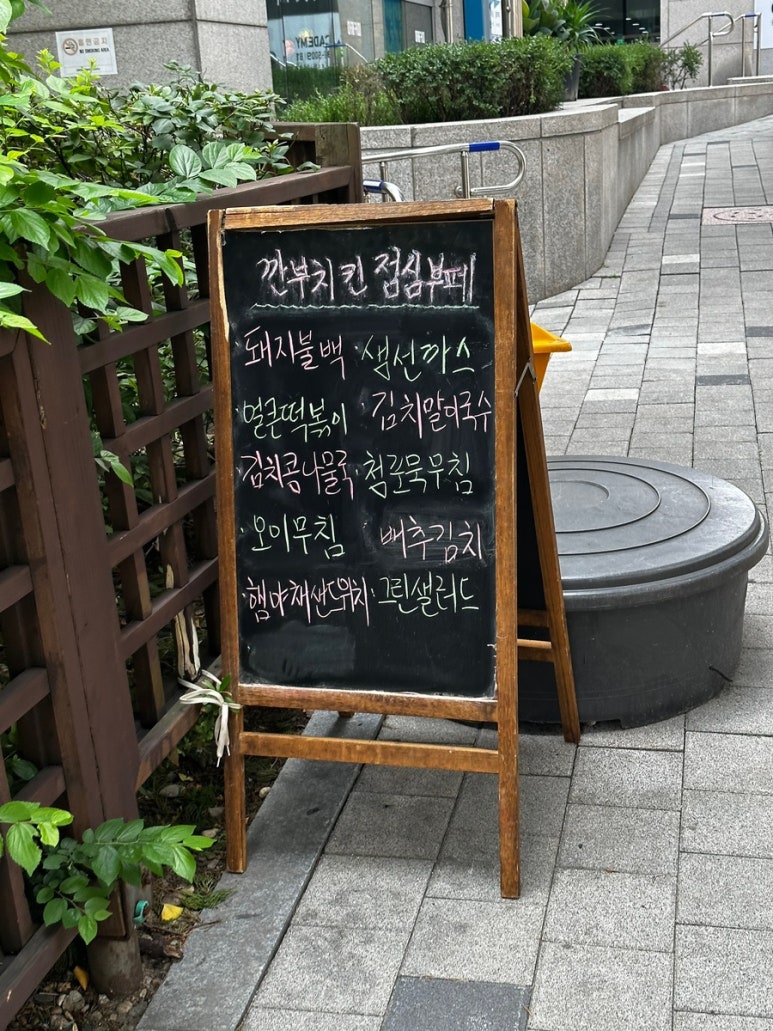 흡연금지
NO SMOKING AREA
CADEMY
깐부치킨 점심부페
·돼지불백 ·생선까스
·얼큰떡볶이 ·김치말이국수
·김치콩나물국 ·청포묵무침
·오이무침 배추김치
·햄야채샌드위치 ·그린샐러드